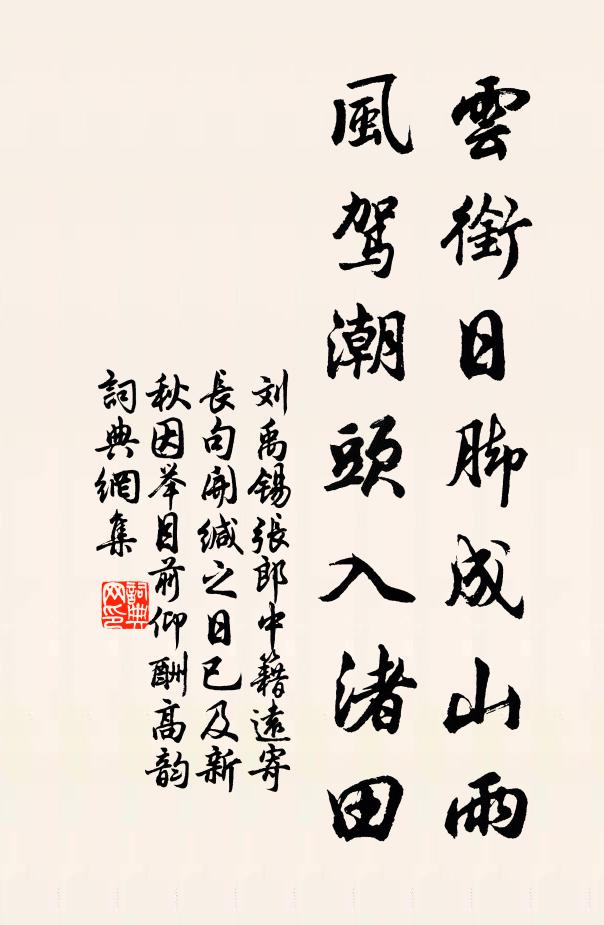 雲銜日脚成山雨
風駕潮頭入渚田
刘禹锡張郎中籍遠寄
長句開緘之日已及新
秋因举目前仰酬高韵
詞典網集
詞典
网印